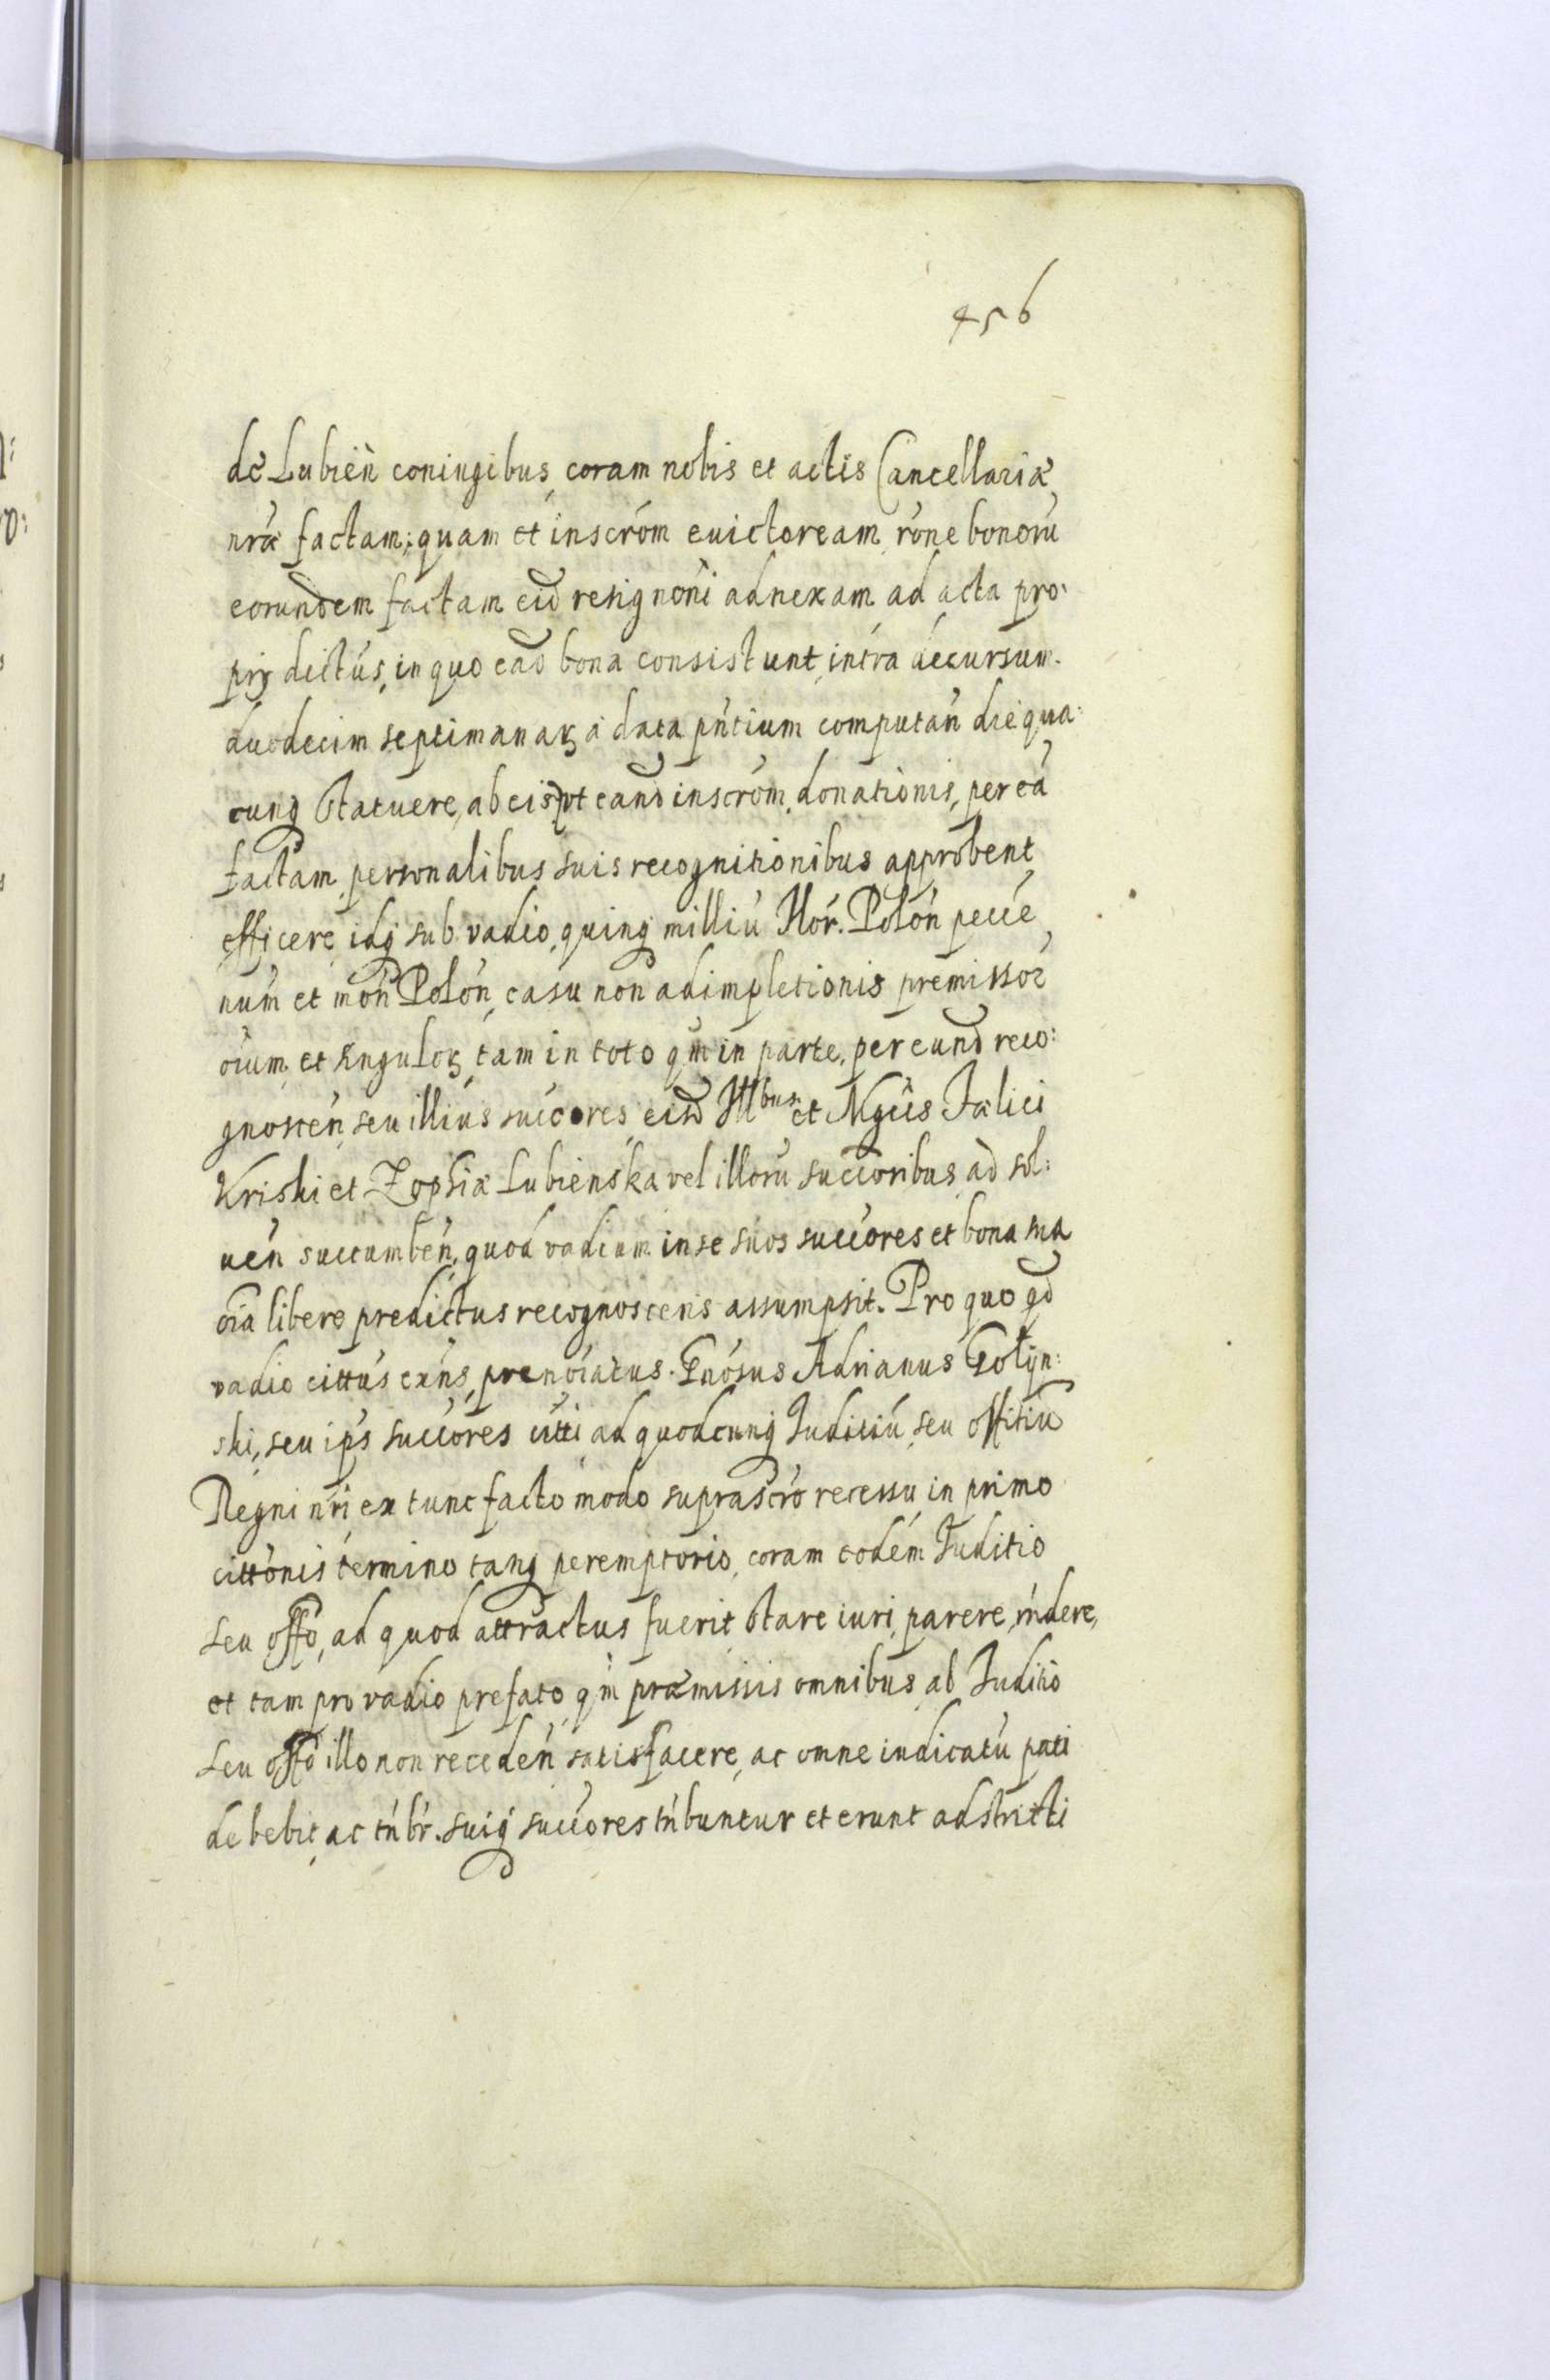 456
de Lubien coniugibus, coram nobis et actis Cancellariæ
nræ factam; quam et inscrom euictoream rone bonoru
eorundem factam eid resignoni adnexam ad acta pro:
prij dictus, in quo ead bona consistunt, intra decursum
duodecim septimanarꝫ a data pntium computan die qua:
cunq statuere, ab eisq vt eand inscrom donationis, per ea
factam personalibus suis recognitionibus approbent,
efficere, idq sub vadio quinq milliu flor. Polon pecce
num et mon Polon, casu non adimpletionis premissor
oium et singulorꝫ tam in toto qm in parte, per eund reco:
gnoscen seu illius succores eisd Illbus et Mgcis Falici
Kriski et Zophiæ Lubienska vel illoru succoribus ad sol:
uen succumben, quod vadium in se suos succores et bona sua
oia libere predictus recognoscens assumpsit. Pro quo qd
vadio cittus exns prenoiatus. Gnosus Adrianus Golÿn:
ski, seu ips succores citti ad quodcunq Iuditiu, seu offitiu
Regni nri ex tunc facto modo suprascro recessu in primo
cittonis termino tanq peremptorio, coram eodem Iuditio
seu offo, ad quod attractus fuerit stare iuri, parere, rndere,
et tam pro vadio prefato qm præmissis omnibus ab Iuditio
seu offo illo non receden satisfacere, ac omne iudicatu pati
debebit, ac tnbr. suiq succores tnbuntur et erunt adstricti